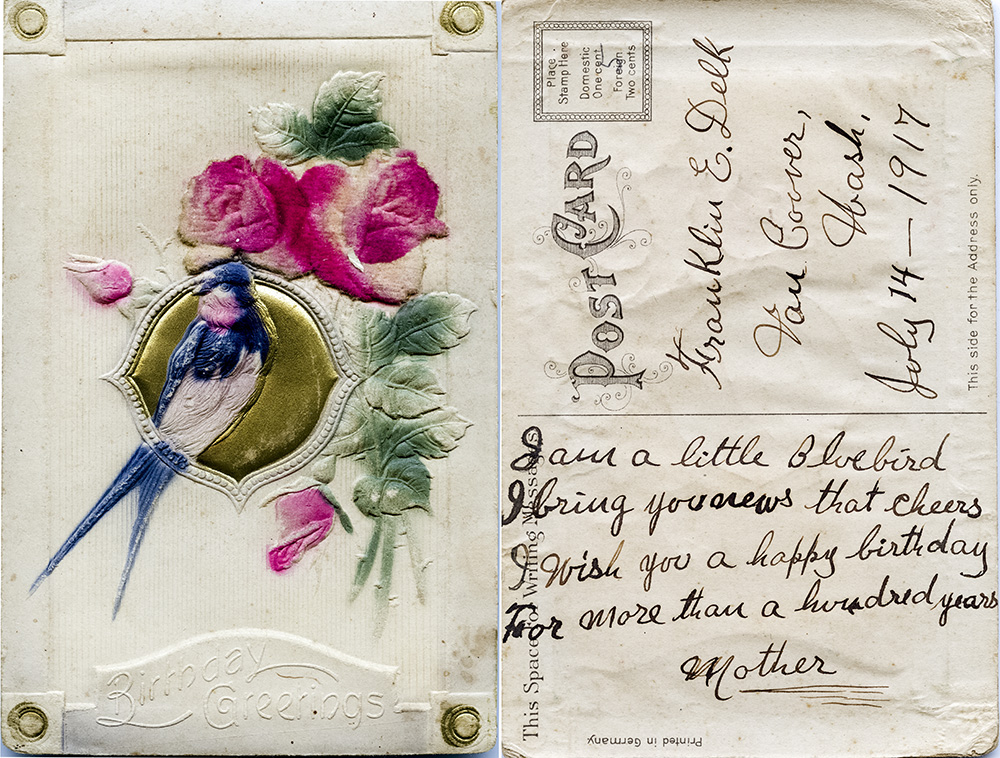 Birthday
Greetings
Place
Stamp Here
Domestic
One cent
Foreign
Two cents
POST CARD
Franklin E. Delk
Van Coover,
Wash,
July 14-1917
This side for the Address only.
I am a little Bluebird
I bring you news that cheers
I wish you a happy birthday
For more than a hundred years
Mother
This Space for Writing Messages
Printed in Germany